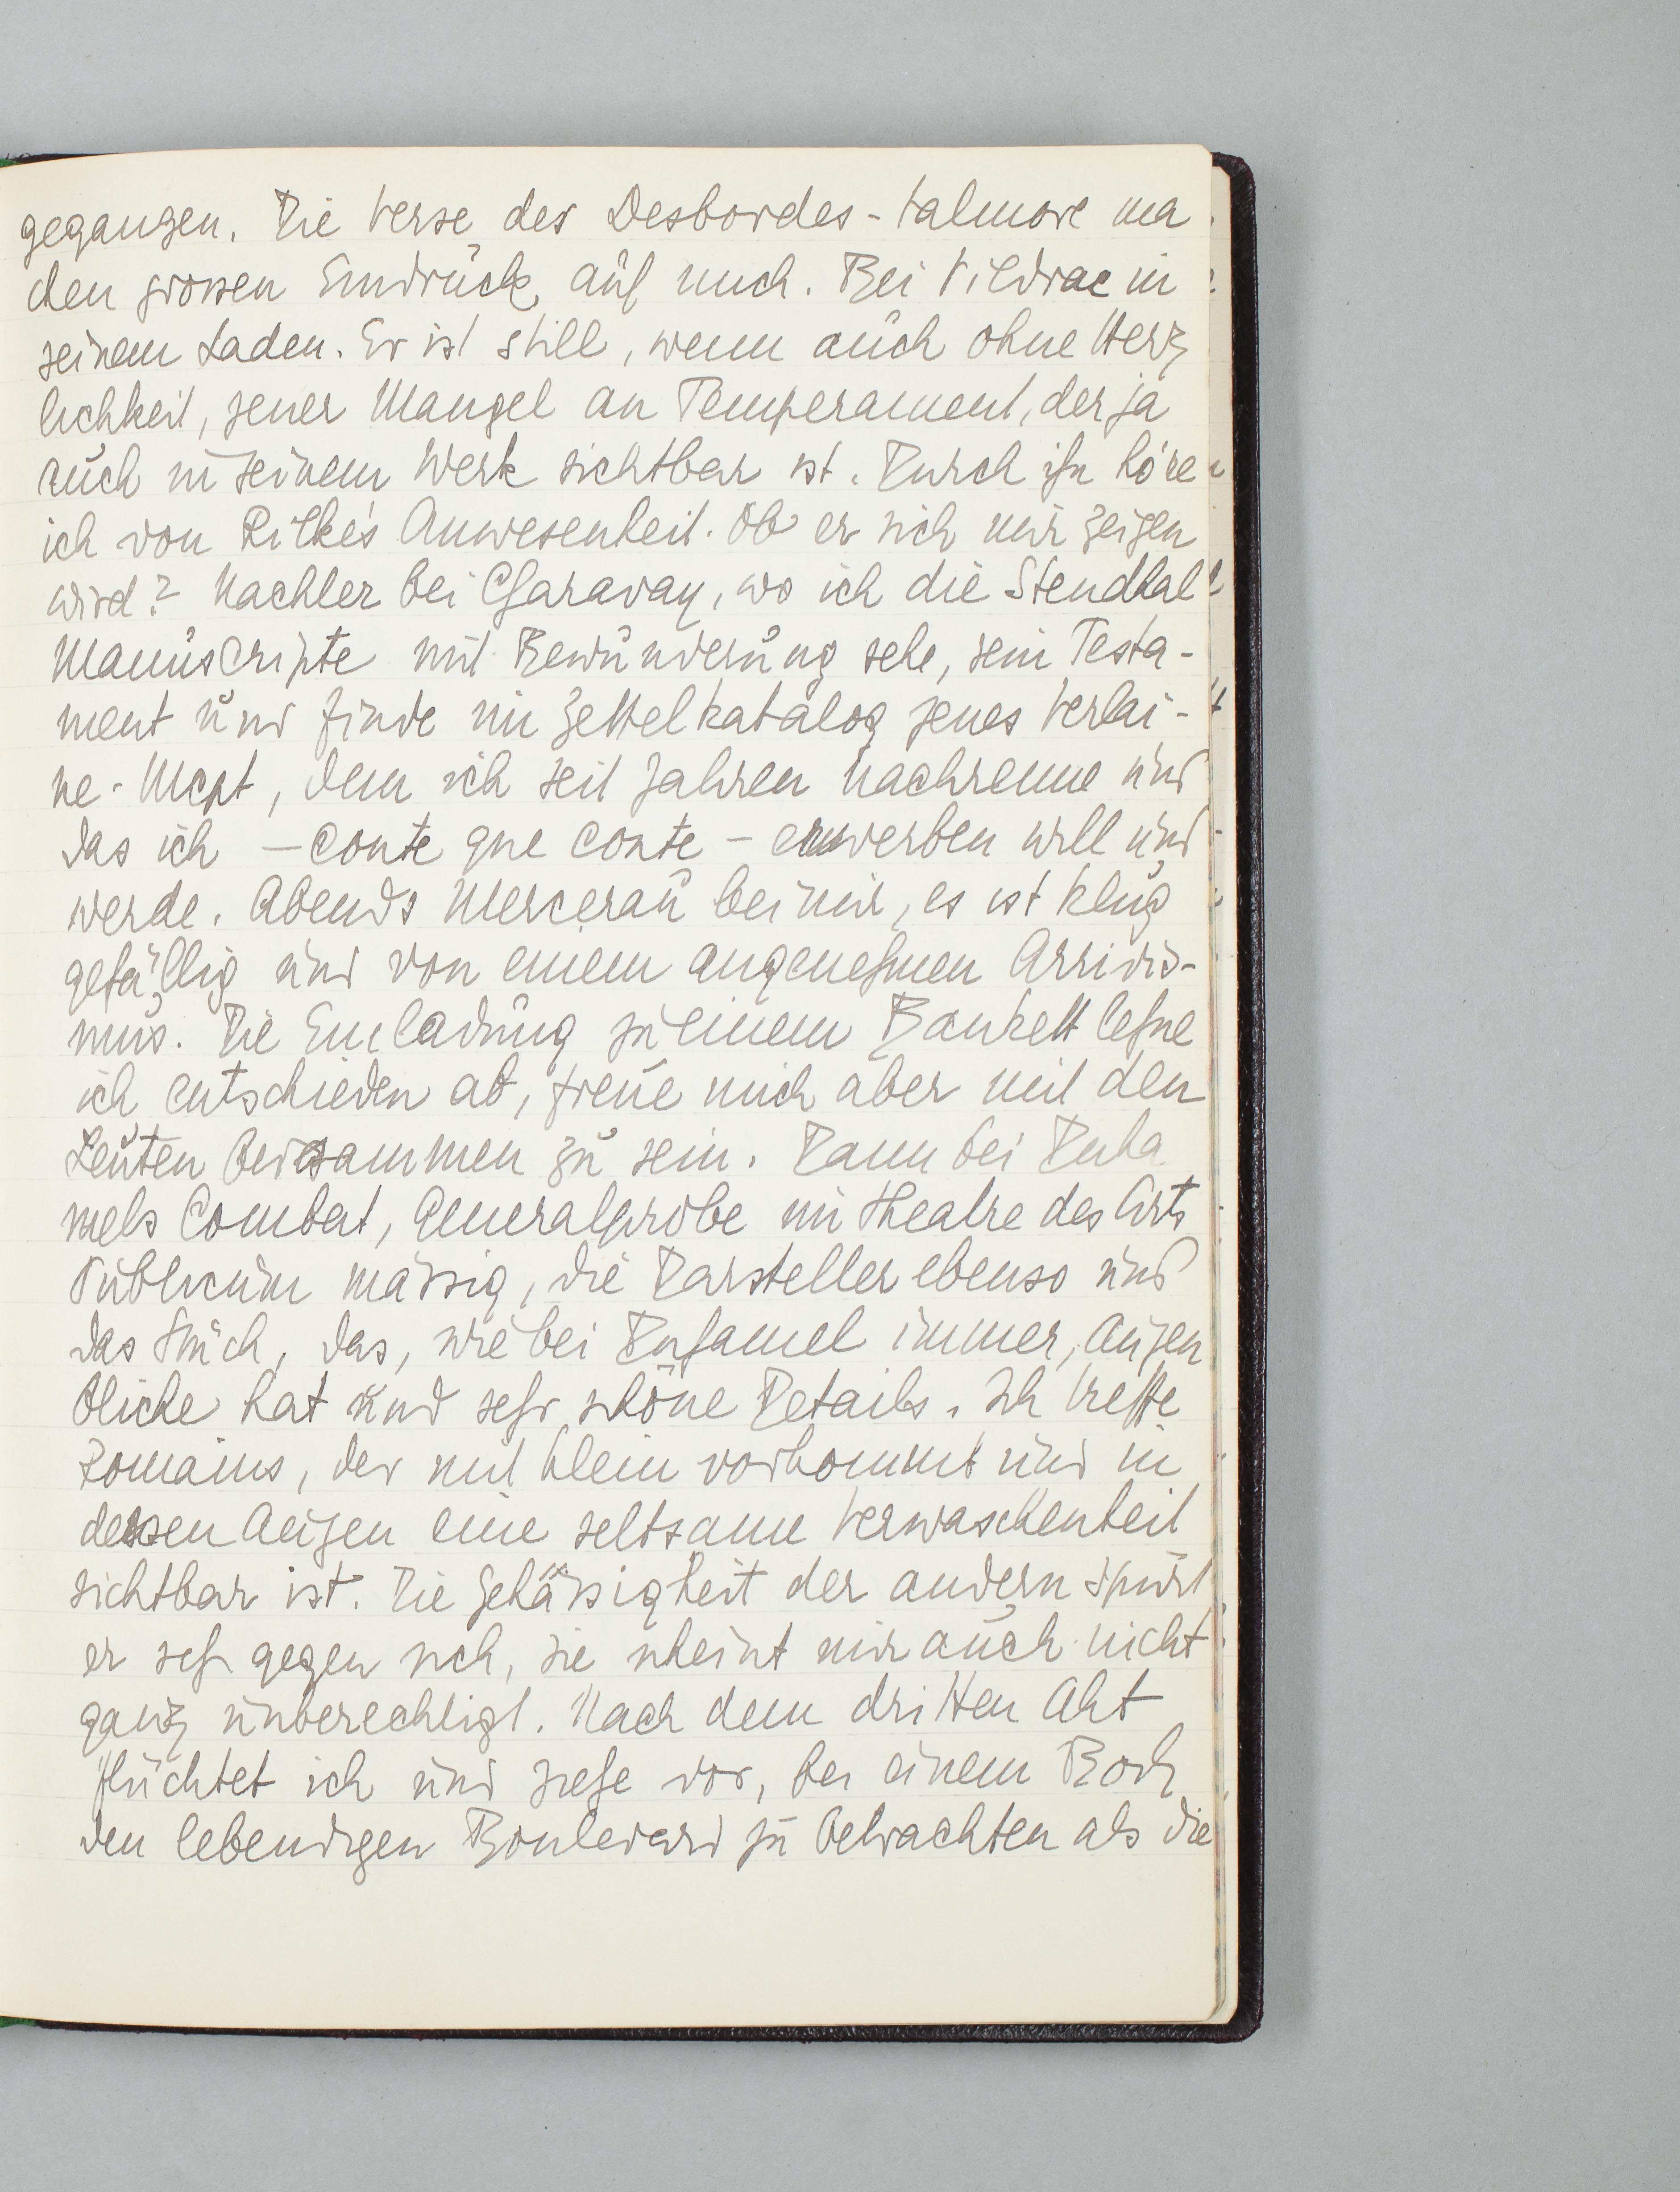 gegangen. Die Verse der Desbordes-Valmore ma
den grossen Eindruck auf mich. Bei Vildrac in
seinem Laden. Er ist still, wenn auch ohne Herz
lichkeit, jener Mangel an Temperament, der ja
auch in seinem Werk sichtbar ist. Durch ihn höre
ich von Rilkes Anwesenheit. Ob er sich mir zeigen
wird? Nachher bei Charavay, wo ich die Stendhal
Manuscripte mit Bewunderung sehe, sein Testa-
ment und finde im Zettelkatalog jenes Verlai-
ne-Mcpt, dem ich seit Jahren nachrenne und
das ich – coute que coute – erwerben will und
werde. Abends Mercerau bei mir, es ist klug
gefällig und von einem angenehmen Arrivis-
mus. Die Einladung zu einem Bankett lehne
ich entschieden ab, freue mich aber mit den
Leuten beisammen zu sein. Dann bei Duha
mels Combat, Generalprobe im Theatre des Arts
Publicum mässig, die Darsteller ebenso und
das Stück, das, wie bei Duhamel immer, Augen
blicke hat und sehr schöne Details. Ich treffe
Romains, der mit klein vorkommt und in
dessen Augen eine seltsame Verwaschenheit
sichtbar ist. Die Gehässigkeit der andern spürt
er sehr gegen sich, sie scheint mir auch nicht
ganz unberechtigt. Nach dem dritten Akt
flüchtet ich und ziehe vor, bei einem Bock
den lebendigen Boulevard zu betrachten als die